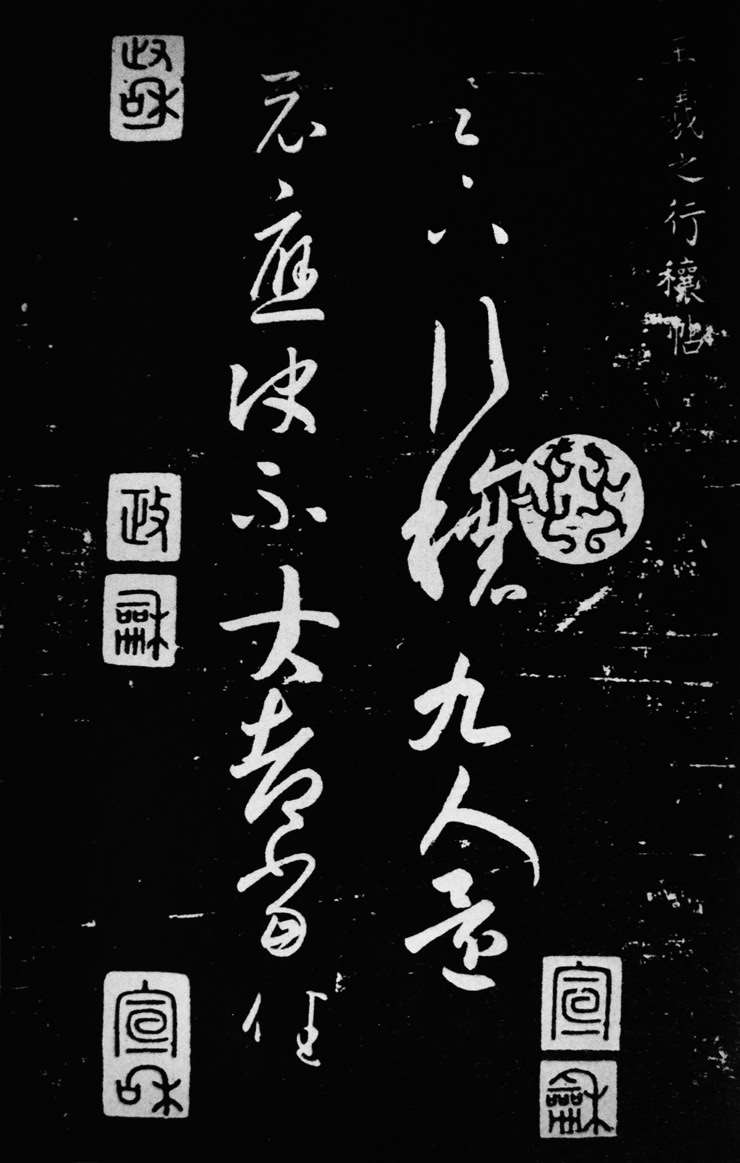 王羲之行穰帖
足下行穰九人還
宣
龢
示應決不大都當佳
政和
政
龢
宣和